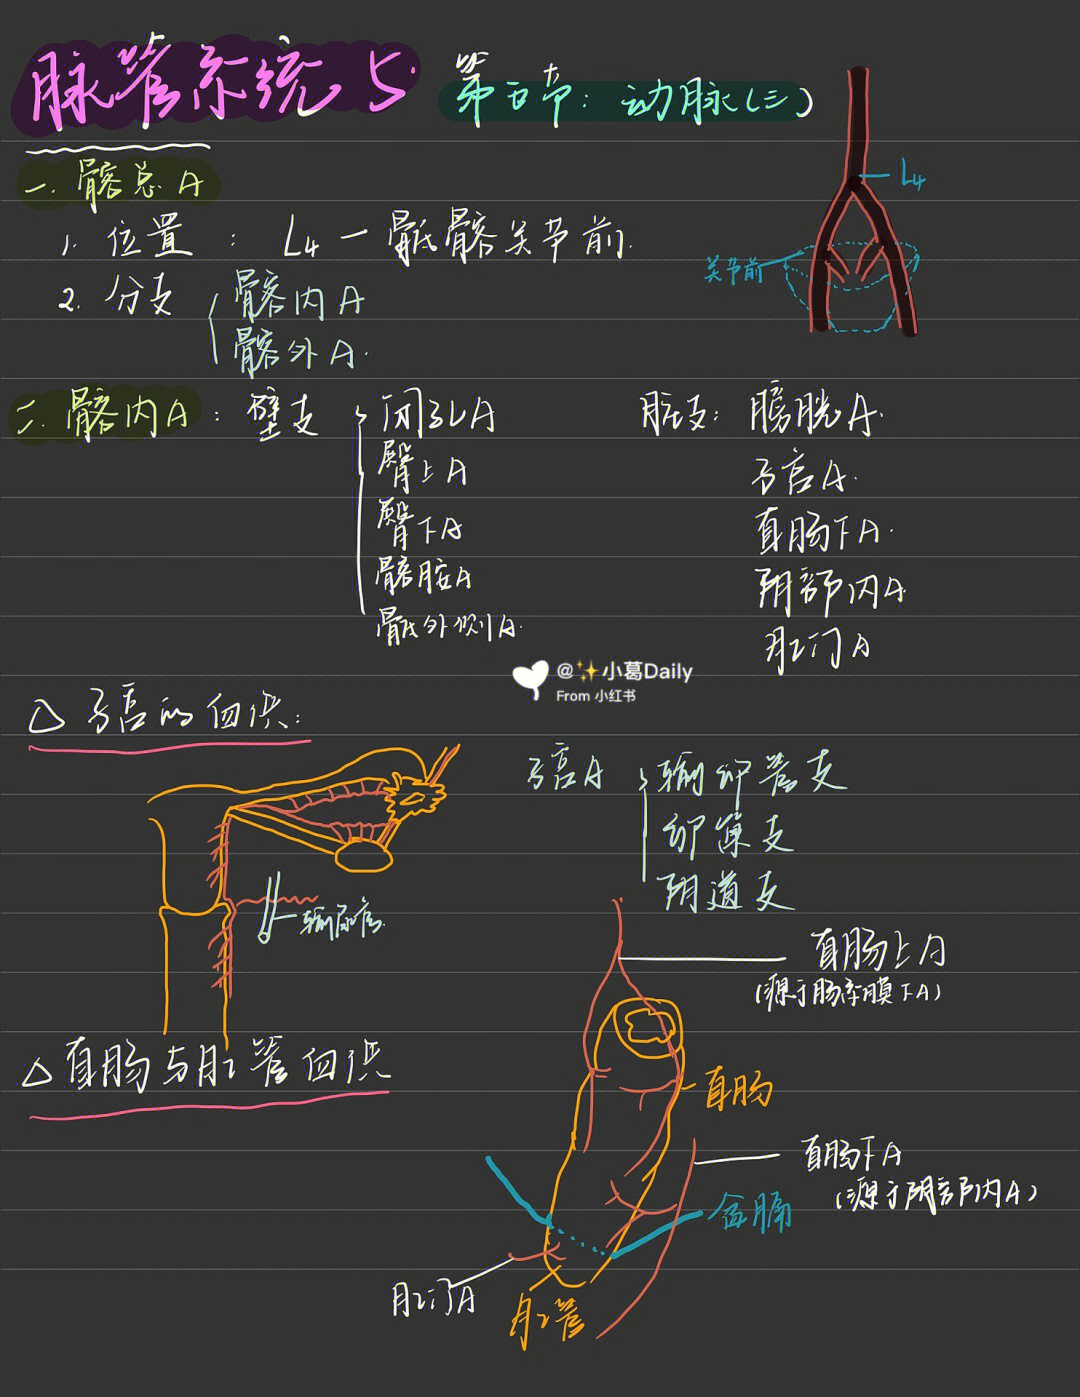 脉管系统 5.
第五节：动脉(三)
一. 髂总A
L4
1. 位置：L4－骶髂关节前.
关节前
2. 分支 髂内A
髂外A.
二. 髂内A：壁支 闭孔A
臀上A
臀下A
髂腰A
骶外侧A.
脏支：膀胱A.
子宫A.
直肠下A.
阴部内A
肛门A
@✨小葛Daily
From 小红书
△ 子宫的血供：
子宫A 输卵管支
卵巢支
阴道支
输尿管.
直肠上A
(源于肠系膜下A)
△ 直肠与肛管血供
直肠
直肠下A
(源于阴部内A)
盆膈
肛门A
肛管